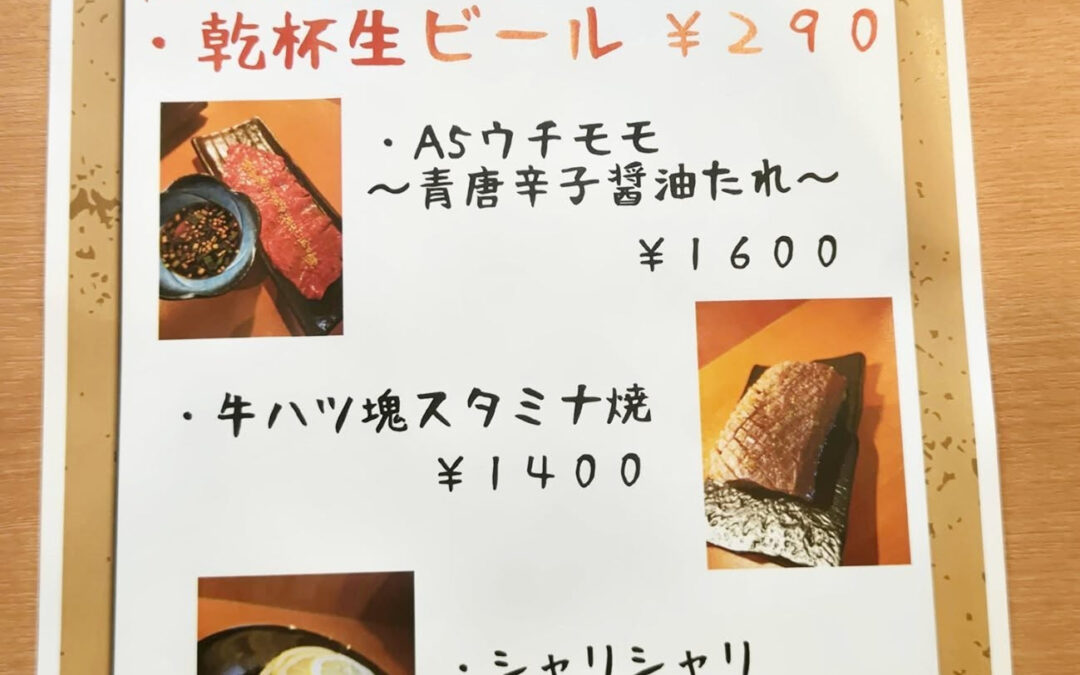 ・乾杯生ビール ￥290
・A5ウチモモ
～青唐辛子醤油たれ～
￥1600
・牛ハツ塊スタミナ焼
￥1400
・シャリシャリ